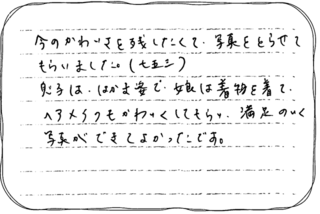 今のかわいさを残したくて、写真をとらせて
もらいました。(七五三)
息子は、はかま姿で、娘は着物を着て、
ヘアメイクもかわいくしてもらい、満足のいく
写真ができてよかったです。